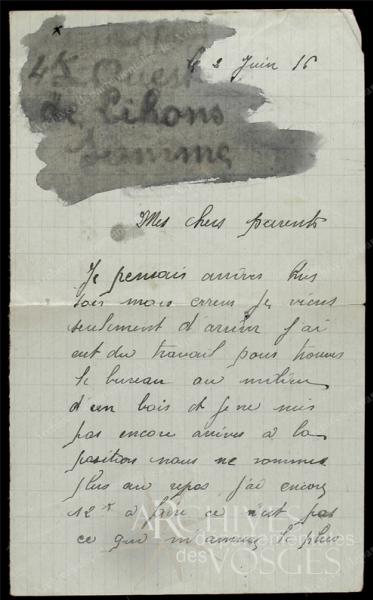 4k Ouest
de Lihons
Somme
le 2 Juin 16
Mes chers parents
Je pensais arriver hier
soir mais erreur je viens
seulement d'arriver j'ai
eut du travail pour trouver
le bureau au milieu
d'un bois et je ne suis
pas encore arriver à la
position nous ne sommes
plus au repos j'ai encore
12 k à faire ce n'est pas
ce qui m'amuse le plus
ARCHIVES
départementales
des VOSGES